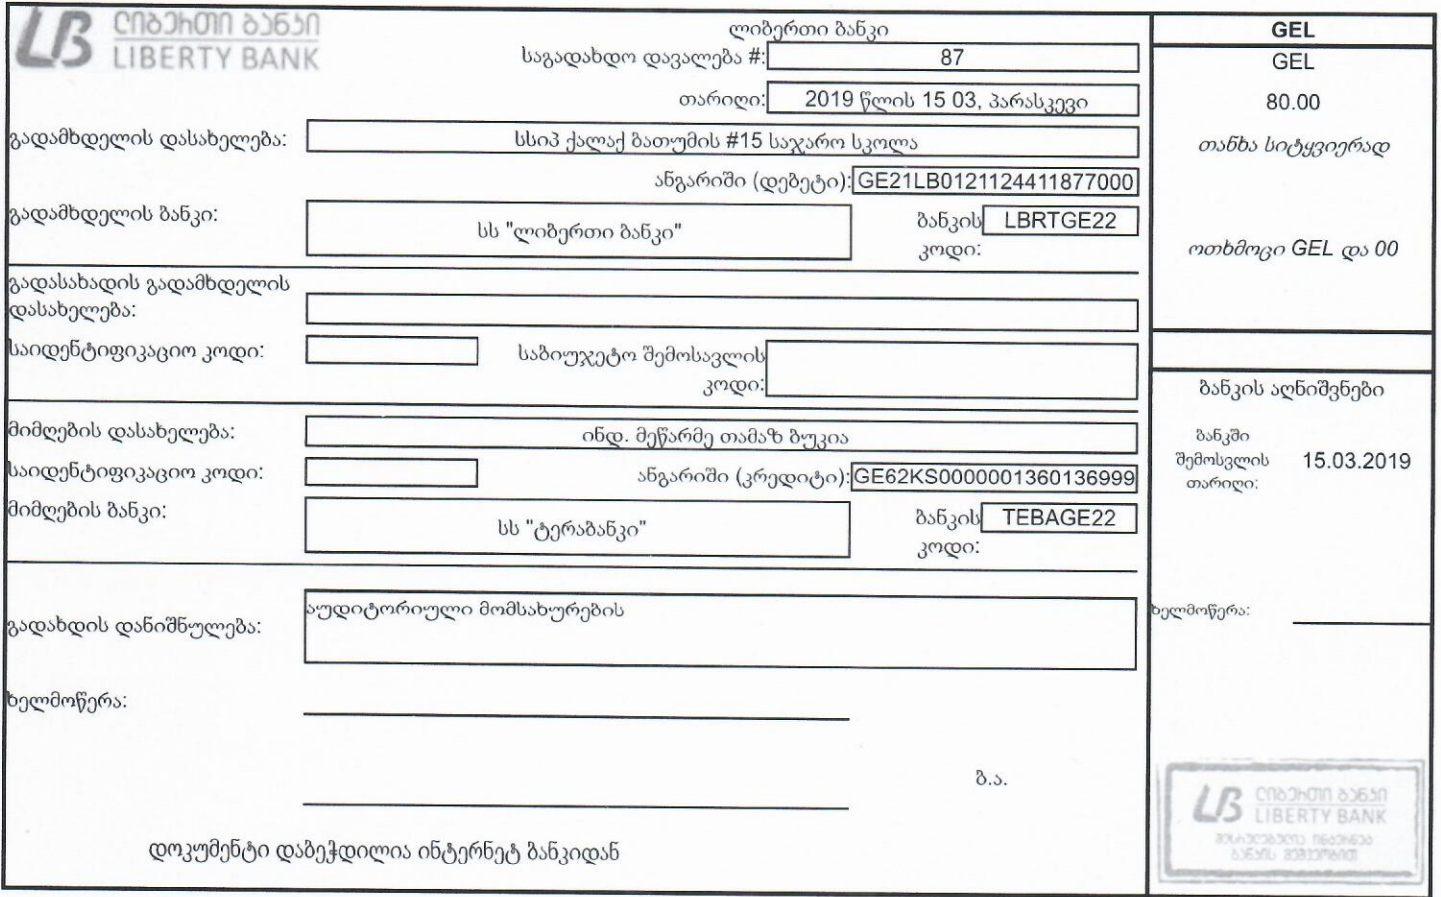 ლიბერთი ბანკი
LIBERTY BANK
ლიბერთი ბანკი
საგადახდო დავალება #: 87
თარიღი: 2019 წლის 15 03, პარასკევი
გადამხდელის დასახელება: სსიპ ქალაქ ბათუმის #15 საჯარო სკოლა
ანგარიში (დებეტი): GE21LB0121124411877000
გადამხდელის ბანკი: სს "ლიბერთი ბანკი"
ბანკის კოდი: LBRTGE22
გადასახადის გადამხდელის
დასახელება:
საიდენტიფიკაციო კოდი:
საბიუჯეტო შემოსავლის
კოდი:
მიმღების დასახელება: ინდ. მეწარმე თამაზ ბუკია
საიდენტიფიკაციო კოდი:
ანგარიში (კრედიტი): GE62KS0000001360136999
მიმღების ბანკი: სს "ტერაბანკი"
ბანკის კოდი: TEBAGE22
გადახდის დანიშნულება: აუდიტორიული მომსახურების
ხელმოწერა:
ბ.ა.
დოკუმენტი დაბეჭდილია ინტერნეტ ბანკიდან
GEL
GEL
80.00
თანხა სიტყვიერად
ოთხმოცი GEL და 00
ბანკის აღნიშვნები
ბანკში
შემოსვლის 15.03.2019
თარიღი:
ხელმოწერა:
ლიბერთი ბანკი
LIBERTY BANK
შესრულებულია ინტერნეტ
ბანკის მეშვეობით